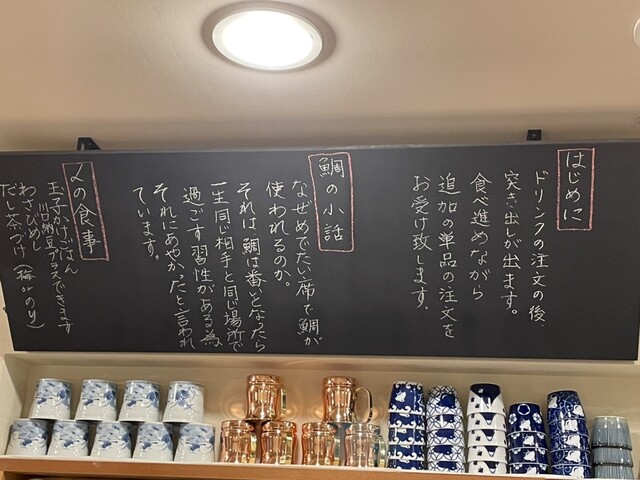 はじめに
ドリンクの注文の後、
突き出しが出ます。
食べ進めながら
追加の単品の注文を
お受け致します。
鯛の小話
なぜめでたい席で鯛が
使われるのか。
それは鯛は番いとなったら
一生同じ相手と同じ場所で
過ごす習性がある為
それにあやかったと言われ
ています。
〆の食事
玉子かけごはん
納豆プラスできます
わさびめし
だし茶づけ(梅orのり)